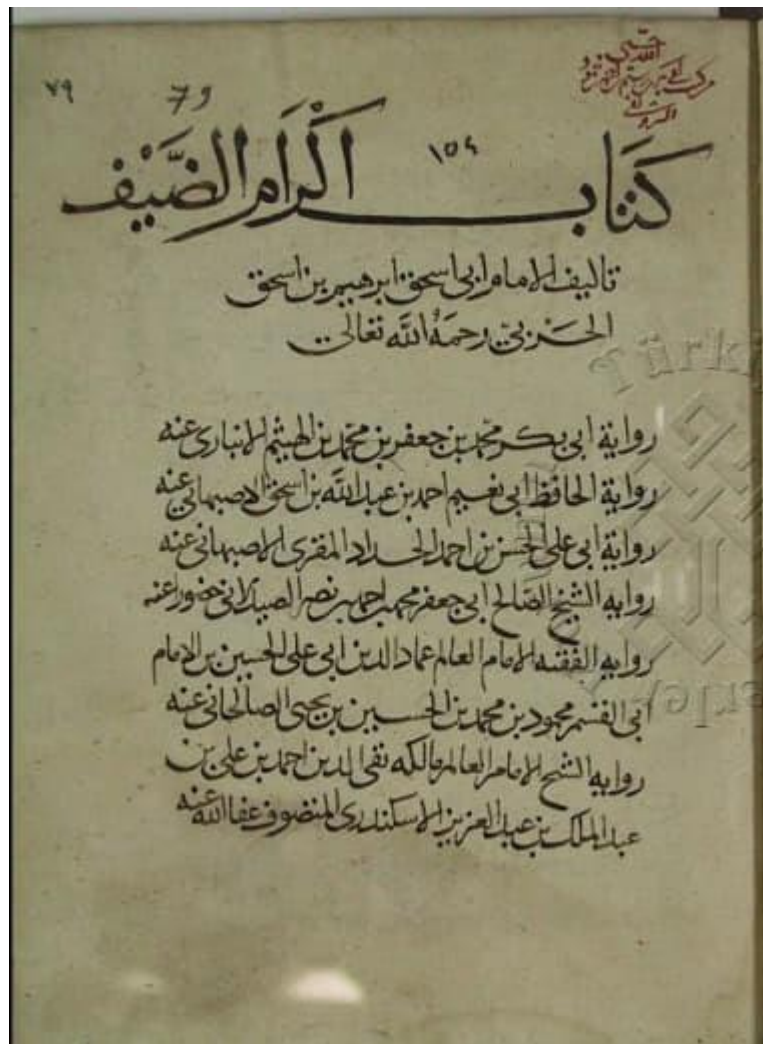 حسبي الله
٧٩
79
١٥٤
كتاب اكرام الضيف
تاليف الامام ابي اسحق ابرهيم بن اسحق
الحَرْبيّ رحمَهُ الله تعَالى
رواية ابي بكر محمد بن جعفر بن محمد بن الهيثم الانباري عنه
رواية الحافظ ابي نعيم احمد بن عبد الله بن اسحق الاصبهاني عنه
رواية ابي علي الحسن بن احمد الحداد المقرى الاصبهاني عنه
روايه الشيخ الصالح ابي جعفر محمد بن احمد بن نصر الصيدلاني حضورا عنه
روايه الفقيه الامام العالم عماد الدين ابي علي الحسين بن الامام
ابي القسم محمود بن محمد بن الحسين بن يحيى الصالحاني عنه
روايه الشيخ الامام العالم مالكه تقي الدين احمد بن علي بن
عبد الملك بن عبد العزيز الاسكندري المتصوف عفا الله عنه
Türki